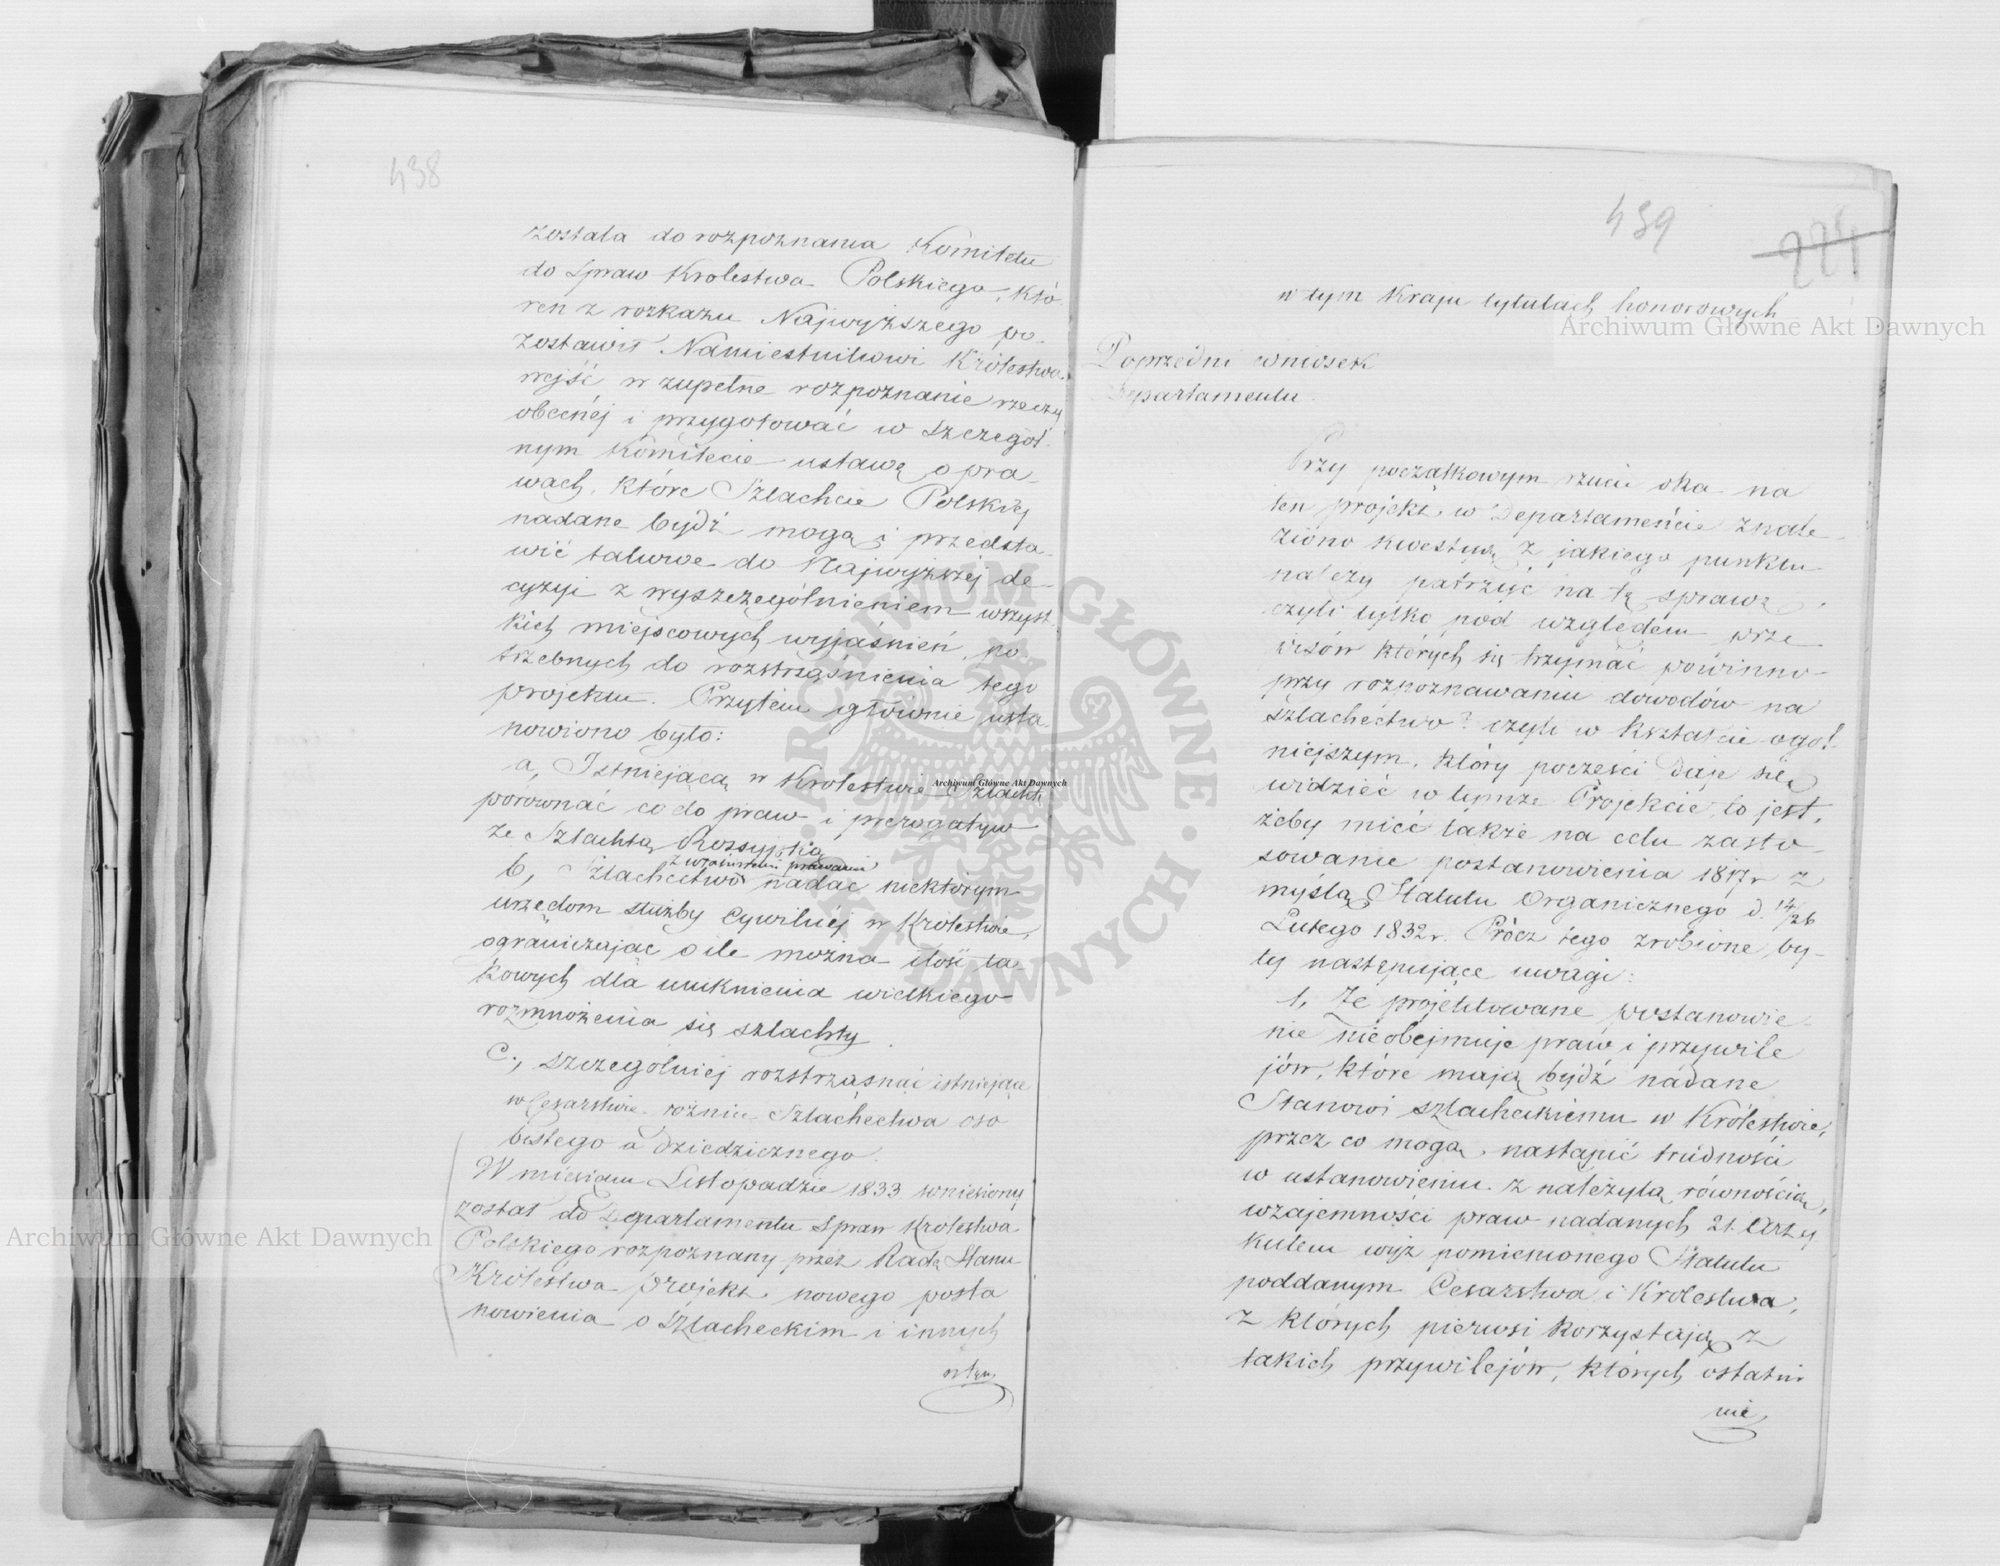 438
została do rozpoznania Komitetu
do Spraw Krolestwa Polskiego, któ-
ren z rozkazu Najwyższego po-
zostawił Namiestnikowi Królestwa
wejść w zupełne rozpoznanie rzeczy
obecnéj i przygotować w szczegól-
nym Komitecie ustawę o pra-
wach, które Szlachcie Polskiéj
nadane bydź mogą i przedsta-
wić takowe do Najwyższéj de-
cyzyi z wyszczególnieniem wszyst-
kich miejscowych wyjaśnień, po-
trzebnych do rozstrząśnienia tego
projektu. Przytem głównie usta-
nowiono było:
a, Istniejącą w Krolestwie Szlachtę
porównać co do praw i prerogatyw
ze Szlachtą Rossyjską
b, Szlachectwo nadać niektórym
urzędom służby Cywilnéj w Królestwie,
ograniczając o ile można ilość ta-
kowych dla uniknienia wielkiego
rozmnożenia się szlachty.
c, szczególniej rozstrząsnąć istniejące
w Cesarstwie różnice Szlachectwa oso
bistego a dziedzicznego.
W miesiącu Listopadzie 1833 wniesiony
został do Departamentu Spraw Krolestwa
Polskiego rozpoznany przez Radę Stanu
Królestwa projekt nowego posta
nowienia o Szlacheckim i innych
w tym
439
224
w tym Kraju tytułach honorowych
Poprzedni wniosek
Departamentu.
Przy początkowym rzucie oka na
ten projekt w Departamencie znale-
ziono kwestyą z jakiego punktu
należy patrzyć na tę sprawę
czyli tylko pod względem prze-
pisów których się trzymać powinno
przy rozpoznawaniu dowodów na
szlachectwo? czyli w kształcie ogól-
niejszym, który poczęści daje się
widzieć w tymże Projekcie, to jest,
żeby mieć także na celu zasto-
sowanie postanowienia 1817 r z
myślą Statutu Organicznego d. 14/26
Lutego 1832 r. Prócz tego zrobione by-
ły następujące uwagi:
1, Że projektowane postanowie-
nie nieobejmuje praw i przywile
jów, które mają bydź nadane
Stanowi szlacheckiemu w Królestwie,
przez co mogą nastąpić trudności
w ustanowieniu z należytą równością,
wzajemności praw nadanych 21. Arty
kułem wyż pomienionego Statutu
poddanym Cesarstwa i Krolestwa,
z których pierwsi korzystają z
takich przywilejów, których ostatni
nie
Archiwum Główne Akt Dawnych
Archiwum Główne Akt Dawnych
Archiwum Główne Akt Dawnych
ARCHIWUM GŁÓWNE AKT DAWNYCH